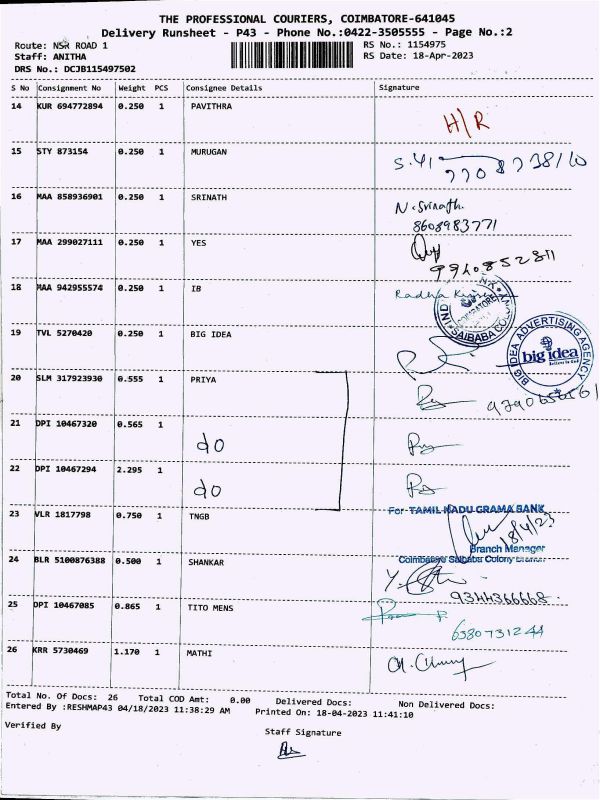 THE PROFESSIONAL COURIERS, COIMBATORE-641045
Delivery Runsheet - P43 - Phone No.:0422-3505555 - Page No.:2
Route: NSR ROAD 1
RS No.: 1154975
Staff: ANITHA
RS Date: 18-Apr-2023
DRS No.: DCJB115497502
S No Consignment No Weight PCS Consignee Details Signature
14 KUR 694772894 0.250 1 PAVITHRA
H/R
15 STY 873154 0.250 1 MURUGAN
16 MAA 858936901 0.250 1 SRINATH
N. Srinath.
8608983771
17 MAA 299027111 0.250 1 YES
18 MAA 942955574 0.250 1 IB
Radha
SAIBABA COL
19 TVL 5270420 0.250 1 BIG IDEA
BIG IDEA ADVERTISING AGENCY
big idea
20 SLM 317923930 0.555 1 PRIYA
21 DPI 10467320 0.565 1
do
22 DPI 10467294 2.295 1
do
23 VLR 1817798 0.750 1 TNGB
For TAMIL NADU GRAMA BANK
18/4/23
Branch Manager
Coimbatore Saibaba Colony Branch
24 BLR 5100876388 0.500 1 SHANKAR
9344366668
25 DPI 10467085 0.865 1 TITO MENS
6380731244
26 KRR 5730469 1.170 1 MATHI
Total No. Of Docs: 26 Total COD Amt: 0.00 Delivered Docs: Non Delivered Docs:
Entered By :RESHMAP43 04/18/2023 11:38:29 AM Printed On: 18-04-2023 11:41:10
Verified By
Staff Signature